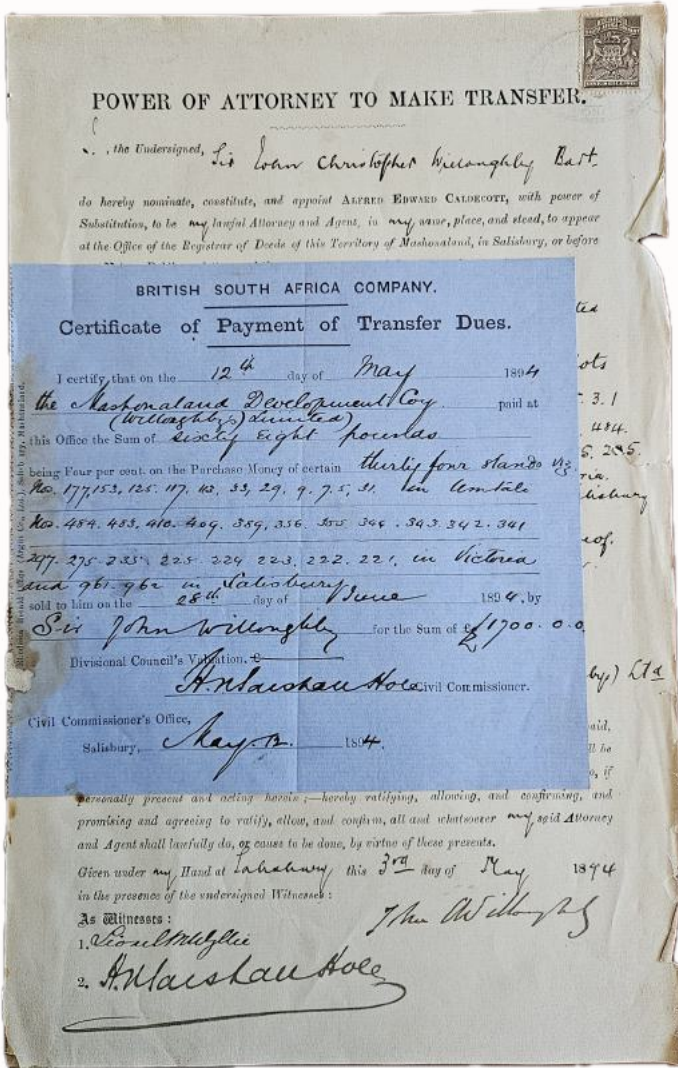 POWER OF ATTORNEY TO MAKE TRANSFER.
the Undersigned, Sir John Christopher Willoughby Bart.
do hereby nominate, constitute, and appoint ALFRED EDWARD CALDECOTT, with power of
Substitution, to be my lawful Attorney and Agent, in my name, place, and stead, to appear
at the Office of the Registrar of Deeds of this Territory of Mashonaland, in Salisbury, or before
BRITISH SOUTH AFRICA COMPANY.
Certificate of Payment of Transfer Dues.
I certify that on the 12th day of May 1894
the Mashonaland Development Coy paid at
(Willoughby's) Limited)
this Office the Sum of sixty eight pounds
being Four per cent. on the Purchase Money of certain thirty four stands viz
No. 177, 153, 125. 117. 113, 33, 29, 9. 7. 5, 31. in Umtali
Nos. 484. 483, 410. 409. 389, 356. 355 344. 343. 342. 341
297. 275. 235. 225. 224 223, 222. 221, in Victoria
and 961. 962 in Salisbury
sold to him on the 28th day of June 1894, by
Sir John Willoughby for the Sum of £1700. 0. 0.
Divisional Council's Valuation. £
H Marshall Hole Civil Commissioner.
Civil Commissioner's Office,
Salisbury, May 12. 1894.
3. 1
484.
lisbury
by) Ltd
said,
ll be
o, if
personally present and acting herein ;—hereby ratifying, allowing, and confirming, and
promising and agreeing to ratify, allow, and confirm, all and whatsoever my said Attorney
and Agent shall lawfully do, or cause to be done, by virtue of these presents.
Given under my Hand at Salisbury this 3rd day of May 1894
in the presence of the undersigned Witnesses :
As Witnesses :
John C Willoughby
1.
2. H Marshall Hole